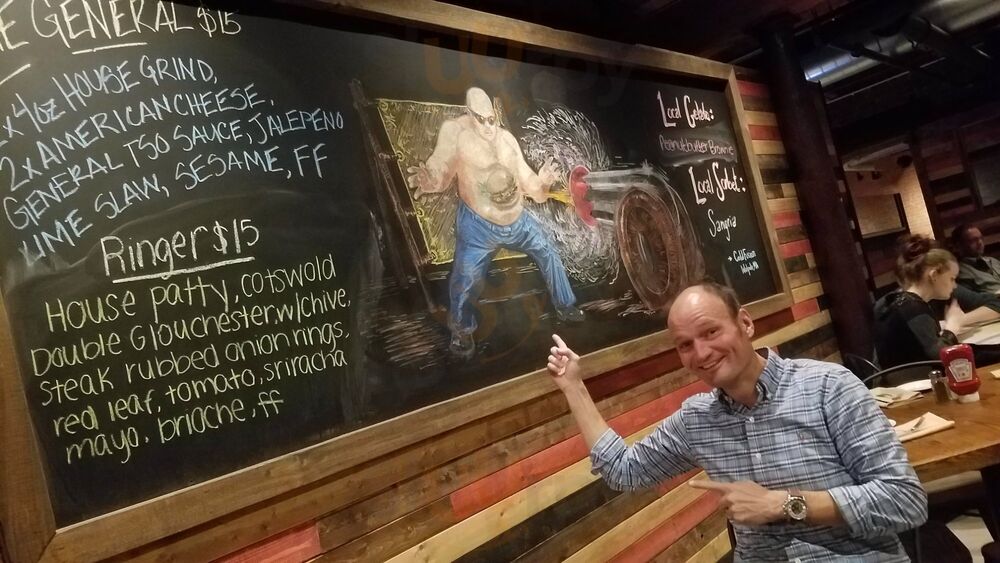 E GENERAL $15
2x 4oz HOUSE GRIND,
2x AMERICAN CHEESE,
GENERAL TSO SAUCE, JALEPENO
LIME SLAW, SESAME, FF
Ringer $15
House patty, cotswold
Double Glouchester, w/chive,
steak rubbed onion rings,
red leaf, tomato, sriracha
mayo, briache, ff
Local Gelato:
Peanutbutter Brownie
Local Sorbet:
Sangria